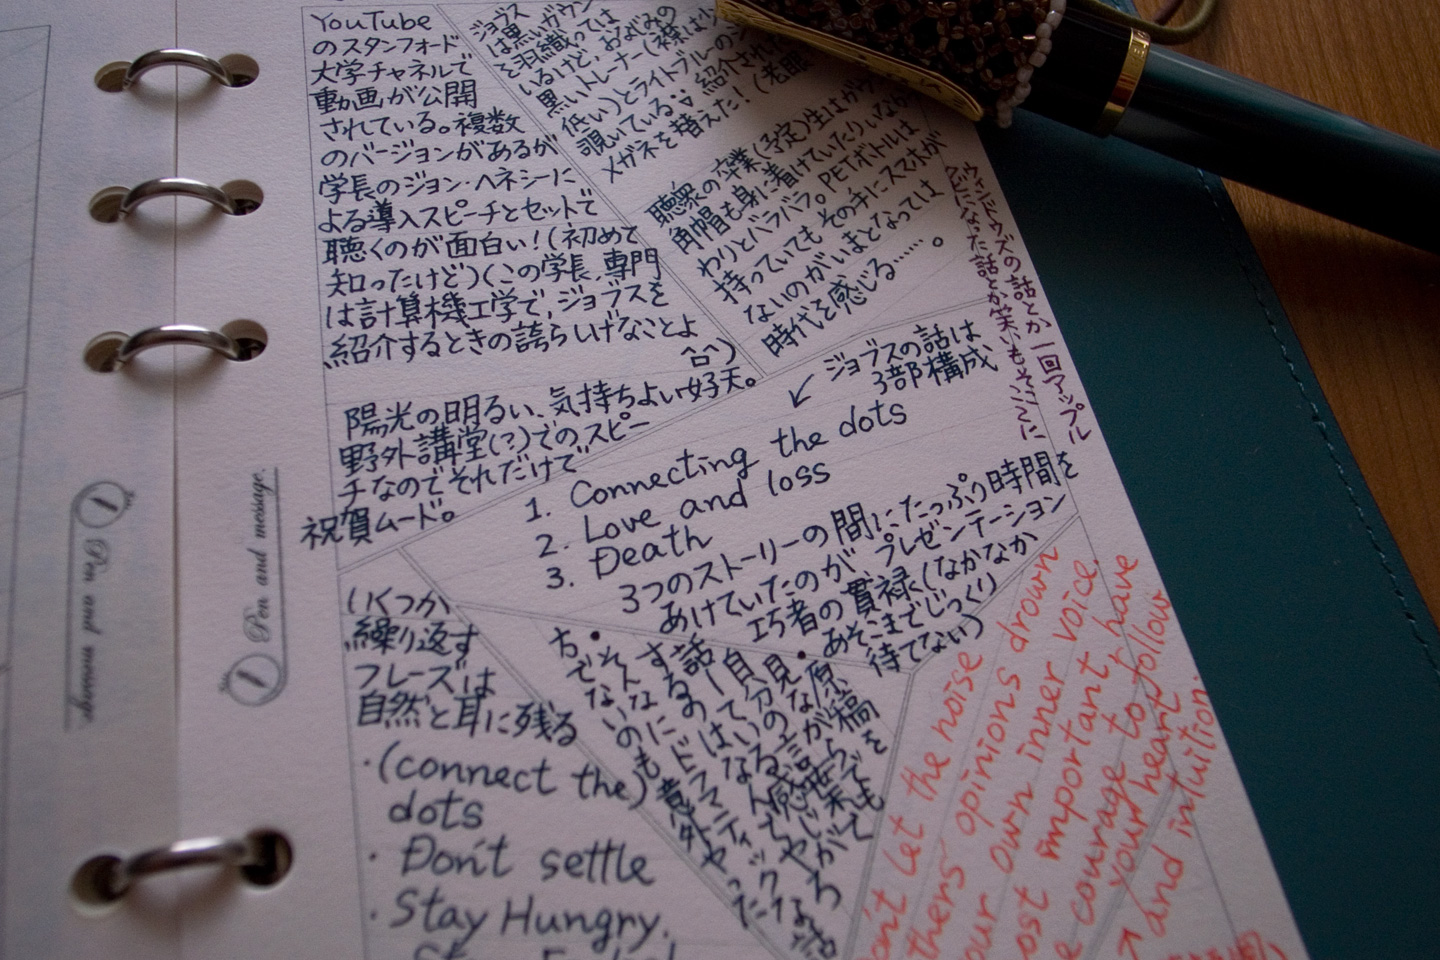 YouTube
のスタンフォード
大学チャネルで
動画が公開
されている。複数
のバージョンがあるが
学長のジョン・ヘネシーに
よる導入スピーチとセットで
聴くのが面白い！(初めて
知ったけど)(この学長、専門
は計算機工学で、ジョブスを
紹介するときの誇らしげなことよ
^^)
陽光の明るい、気持ちよい好天。
野外講堂(?)でのスピー
チなのでそれだけで
祝賀ムード。
ジョブス
は黒いガウン
を羽織っては
いるけど、おなじみの
黒いトレーナー(襟は少
低い)とライトブルーの
覗いている 紹介された
メガネを替えた！(老眼
聴衆の卒業(予定)生はガウ
角帽も身に着けていたりいなか
わりとバラバラ。PETボトルは
持っていてもその手にスマホが
ないのがいまとなっては
時代を感じる……。
ウィンドウズの話とか一回アップル
クビになった話とか笑いもそこここに
ジョブスの話は
3部構成
1. Connecting the dots
2. Love and loss
3. Death
3つのストーリーの間にたっぷり時間を
あけていたのが、プレゼンテーション
巧者の貫禄(なかなか
あそこまでじっくり
待てない)
いくつか
繰り返す
フレーズは
自然と耳に残る
・(connect the)
dots
・Don't settle
・Stay Hungry.
・原稿を
見ながらでも
自分の言葉で
話している感じが
するのはなんで
そんなにドラマティックな話
でないのも意外やった
Let the noise
opinions drown
own inner voice.
important have
courage to follow
your heart
and intuition.